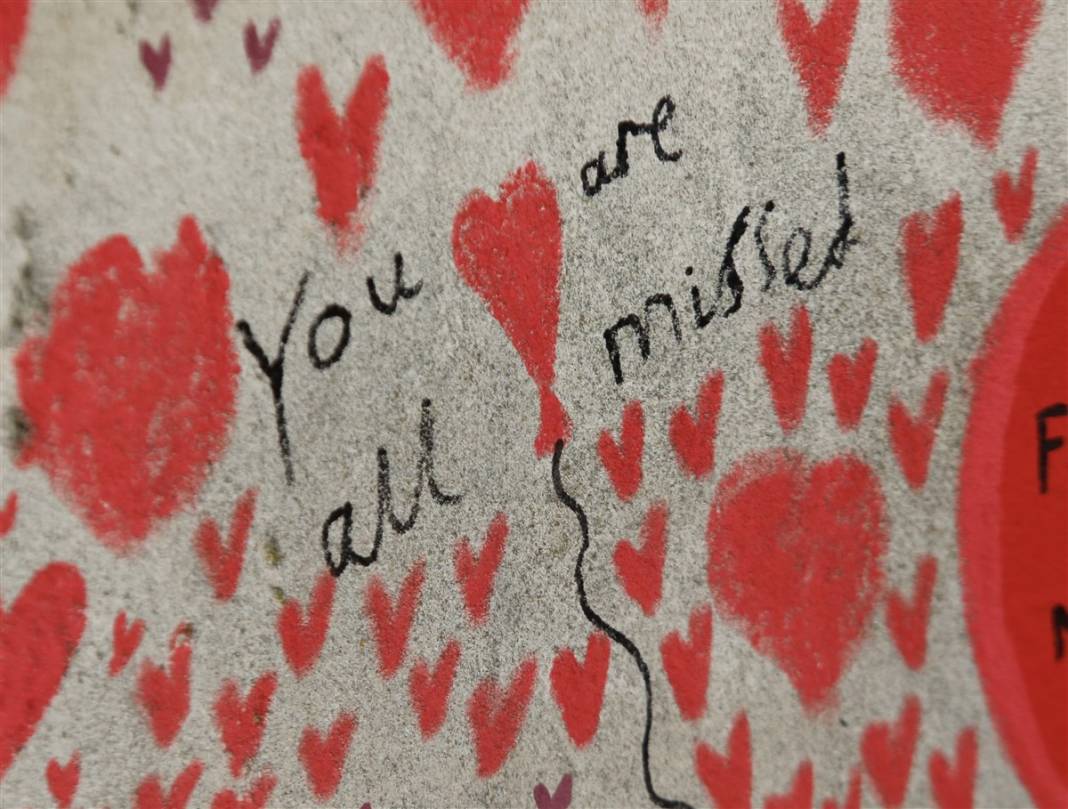 You
all
are
missed
F